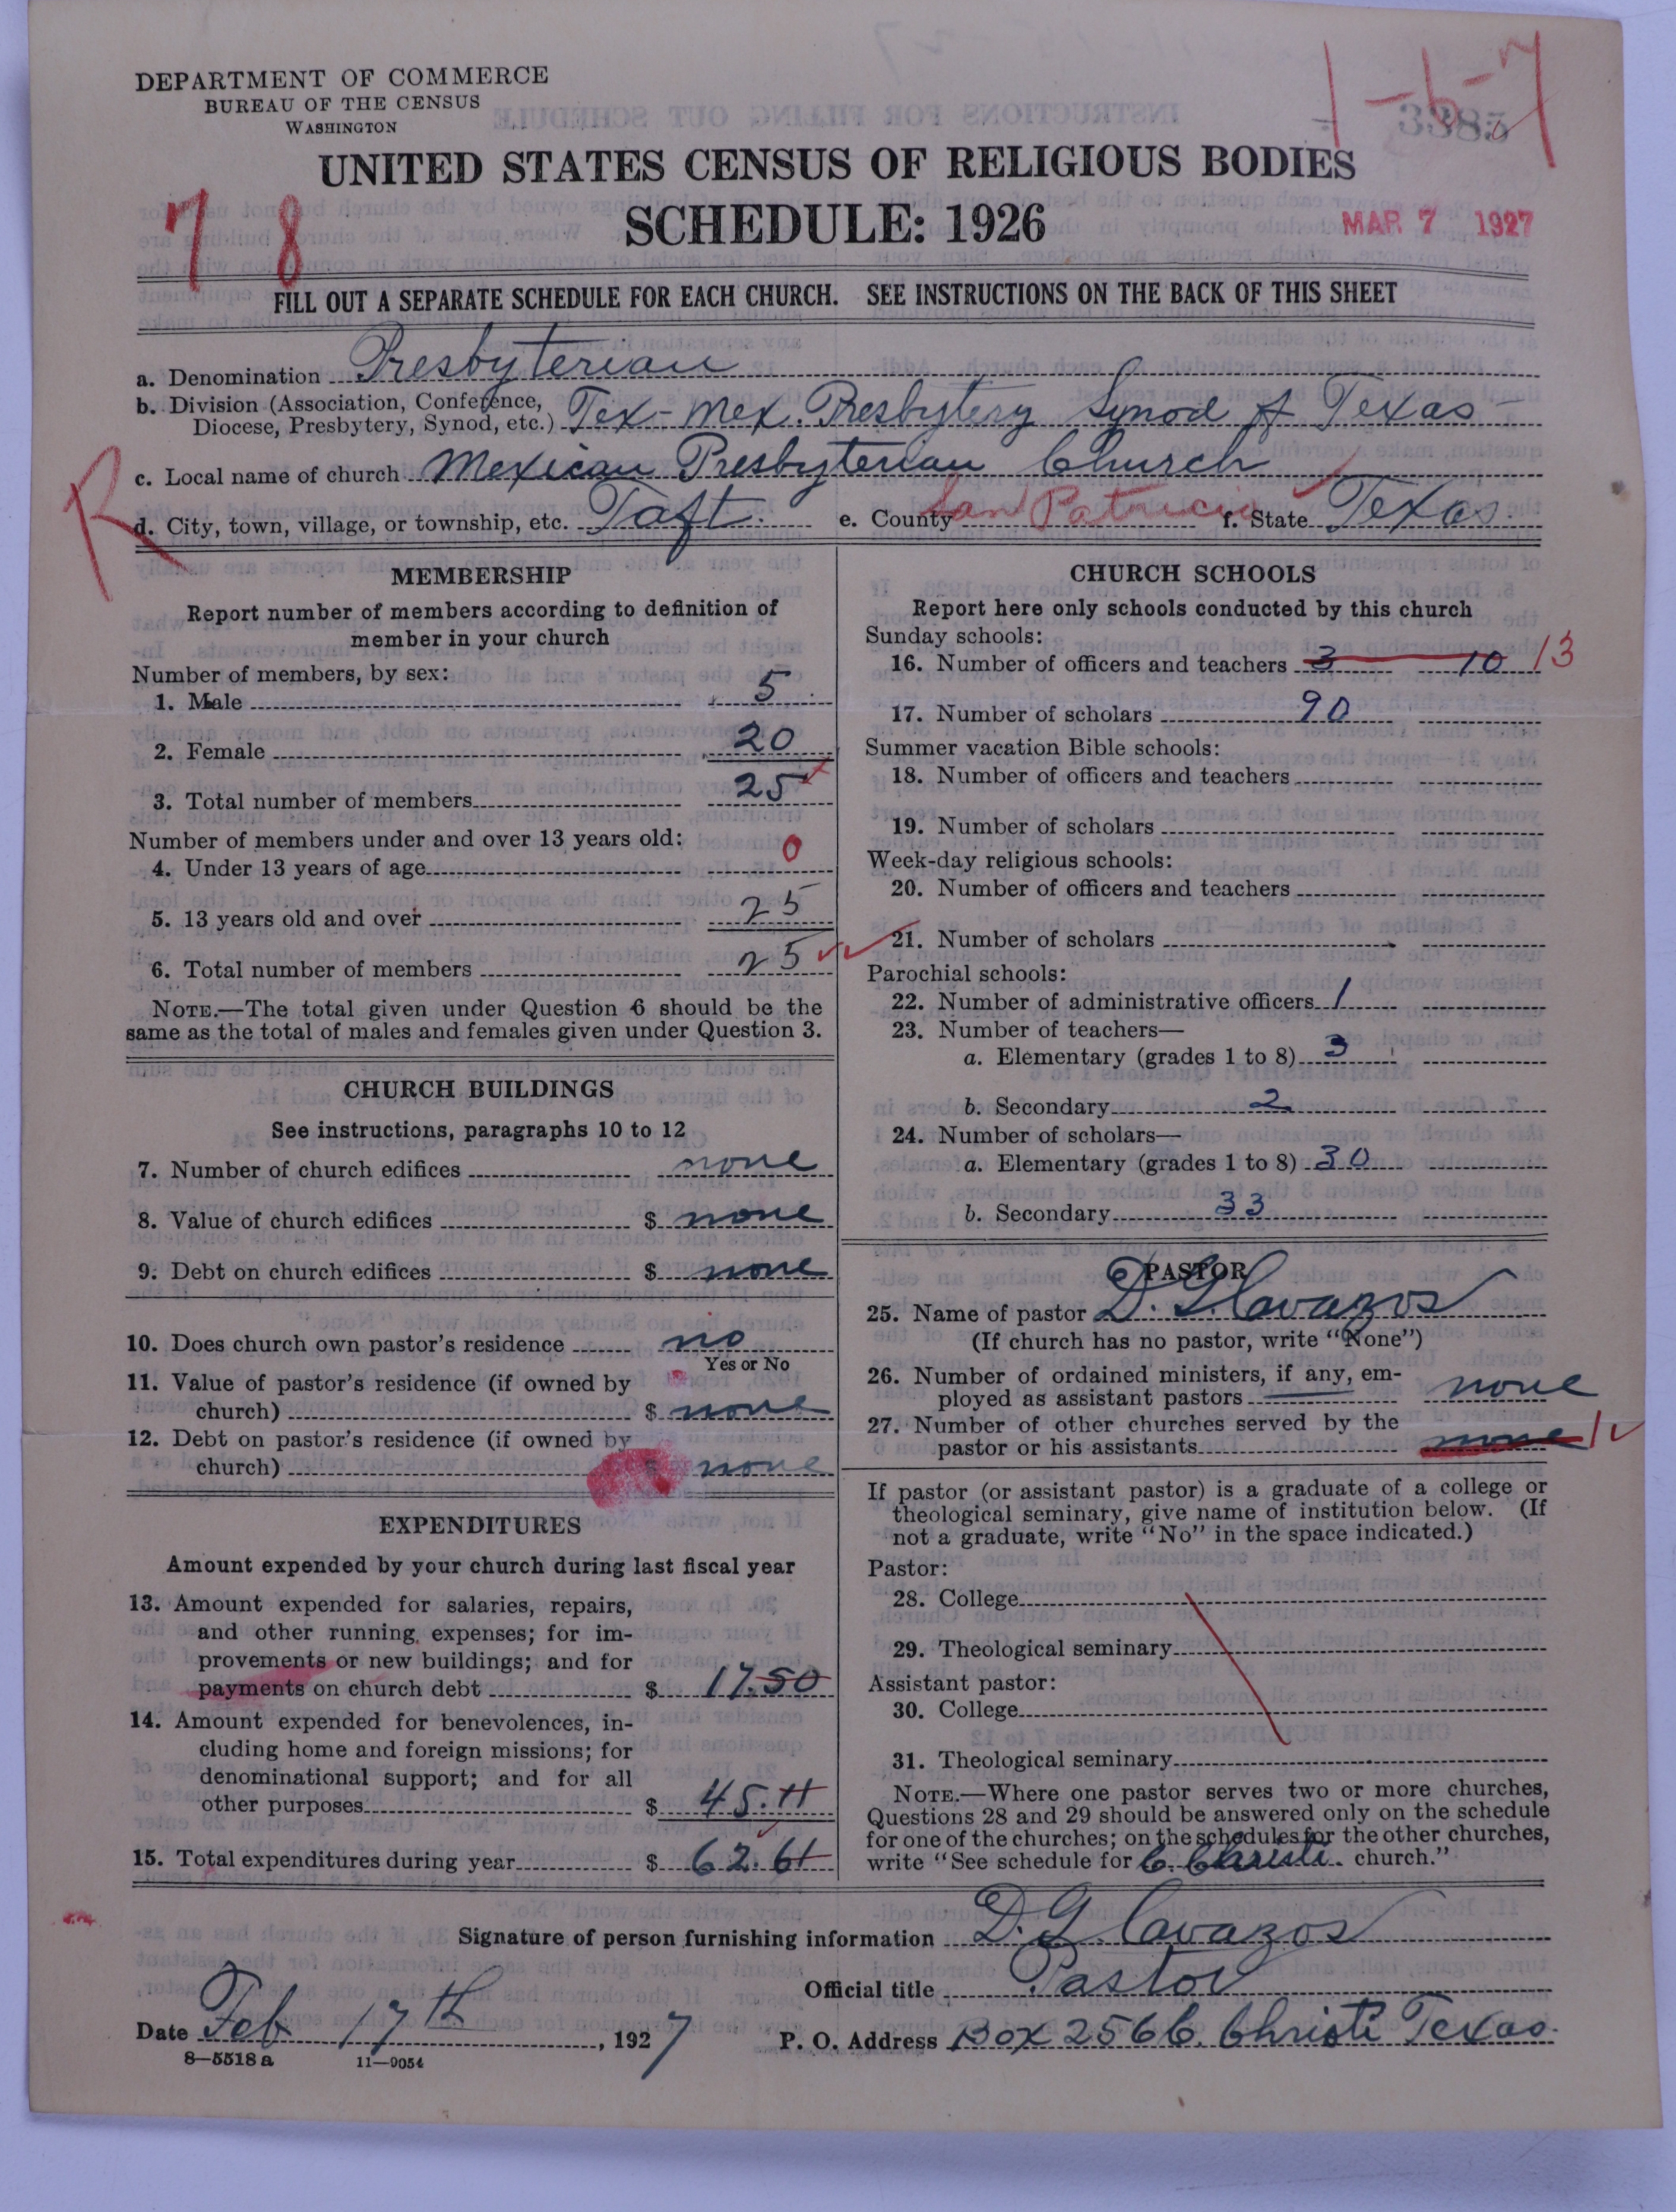 DEPARTMENT OF COMMERCE
BUREAU OF THE CENSUS
WASHINGTON
1-6-7
3385
UNITED STATES CENSUS OF RELIGIOUS BODIES
SCHEDULE: 1926
7 8
MAR 7 1927
FILL OUT A SEPARATE SCHEDULE FOR EACH CHURCH. SEE INSTRUCTIONS ON THE BACK OF THIS SHEET
a. Denomination Presbyterian
b. Division (Association, Conference, Diocese, Presbytery, Synod, etc.) Tex-Mex. Presbytery Synod of Texas-
c. Local name of church Mexican Presbyterian Church
R
d. City, town, village, or township, etc. Taft. e. County San Patricio f. State Texas
MEMBERSHIP
Report number of members according to definition of
member in your church
Number of members, by sex:
1. Male 5
2. Female 20
3. Total number of members 25
Number of members under and over 13 years old:
4. Under 13 years of age 0
5. 13 years old and over 25
6. Total number of members 25
NOTE.—The total given under Question 6 should be the
same as the total of males and females given under Question 3.
CHURCH BUILDINGS
See instructions, paragraphs 10 to 12
7. Number of church edifices none
8. Value of church edifices $ none
9. Debt on church edifices $ none
10. Does church own pastor's residence no
Yes or No
11. Value of pastor's residence (if owned by
church) $ none
12. Debt on pastor's residence (if owned by
church) $ none
EXPENDITURES
Amount expended by your church during last fiscal year
13. Amount expended for salaries, repairs,
and other running expenses; for im-
provements or new buildings; and for
payments on church debt $ 17.50
14. Amount expended for benevolences, in-
cluding home and foreign missions; for
denominational support; and for all
other purposes $ 45.11
15. Total expenditures during year $ 62.61
CHURCH SCHOOLS
Report here only schools conducted by this church
Sunday schools:
16. Number of officers and teachers 3 10 13
17. Number of scholars 90
Summer vacation Bible schools:
18. Number of officers and teachers
19. Number of scholars
Week-day religious schools:
20. Number of officers and teachers
21. Number of scholars
Parochial schools:
22. Number of administrative officers 1
23. Number of teachers—
a. Elementary (grades 1 to 8) 3
b. Secondary 2
24. Number of scholars—
a. Elementary (grades 1 to 8) 30
b. Secondary 33
PASTOR
25. Name of pastor D. G. Cavazos
(If church has no pastor, write "None")
26. Number of ordained ministers, if any, em-
ployed as assistant pastors none
27. Number of other churches served by the
pastor or his assistants none 1
If pastor (or assistant pastor) is a graduate of a college or
theological seminary, give name of institution below. (If
not a graduate, write "No" in the space indicated.)
Pastor:
28. College
29. Theological seminary
Assistant pastor:
30. College
31. Theological seminary
NOTE.—Where one pastor serves two or more churches,
Questions 28 and 29 should be answered only on the schedule
for one of the churches; on the schedules for the other churches,
write "See schedule for C. Christi church."
Signature of person furnishing information D. G. Cavazos
Official title Pastor
Date Feb 17th, 1927 P. O. Address Box 256 C. Christi Texas.
8—5518 a 11—9054